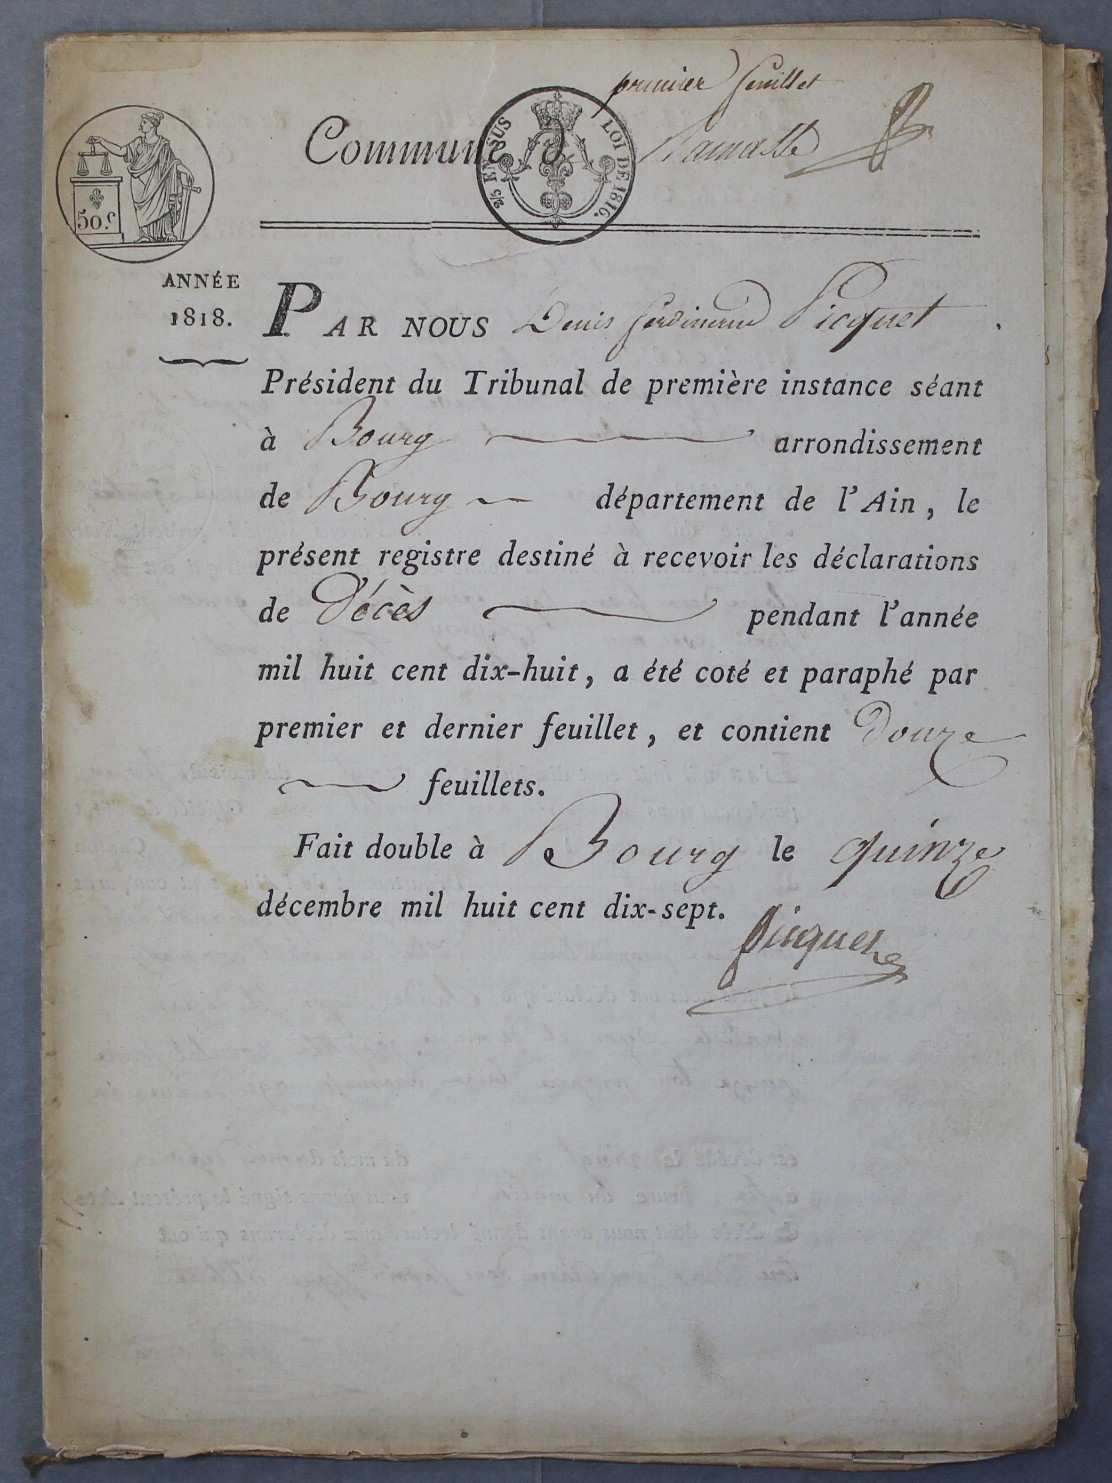 premier feuillet
Commune d Ramasse
2/5 EN SUS LOI DE 1816.
50.c
ANNÉE
1818.
PAR NOUS Denis ferdinand Picquet
Président du Tribunal de première instance séant
à Bourg arrondissement
de Bourg département de l'Ain, le
présent registre destiné à recevoir les déclarations
de Décès pendant l'année
mil huit cent dix-huit, a été coté et paraphé par
premier et dernier feuillet, et contient Douze
feuillets.
Fait double à Bourg le quinze
décembre mil huit cent dix-sept.
Picquet